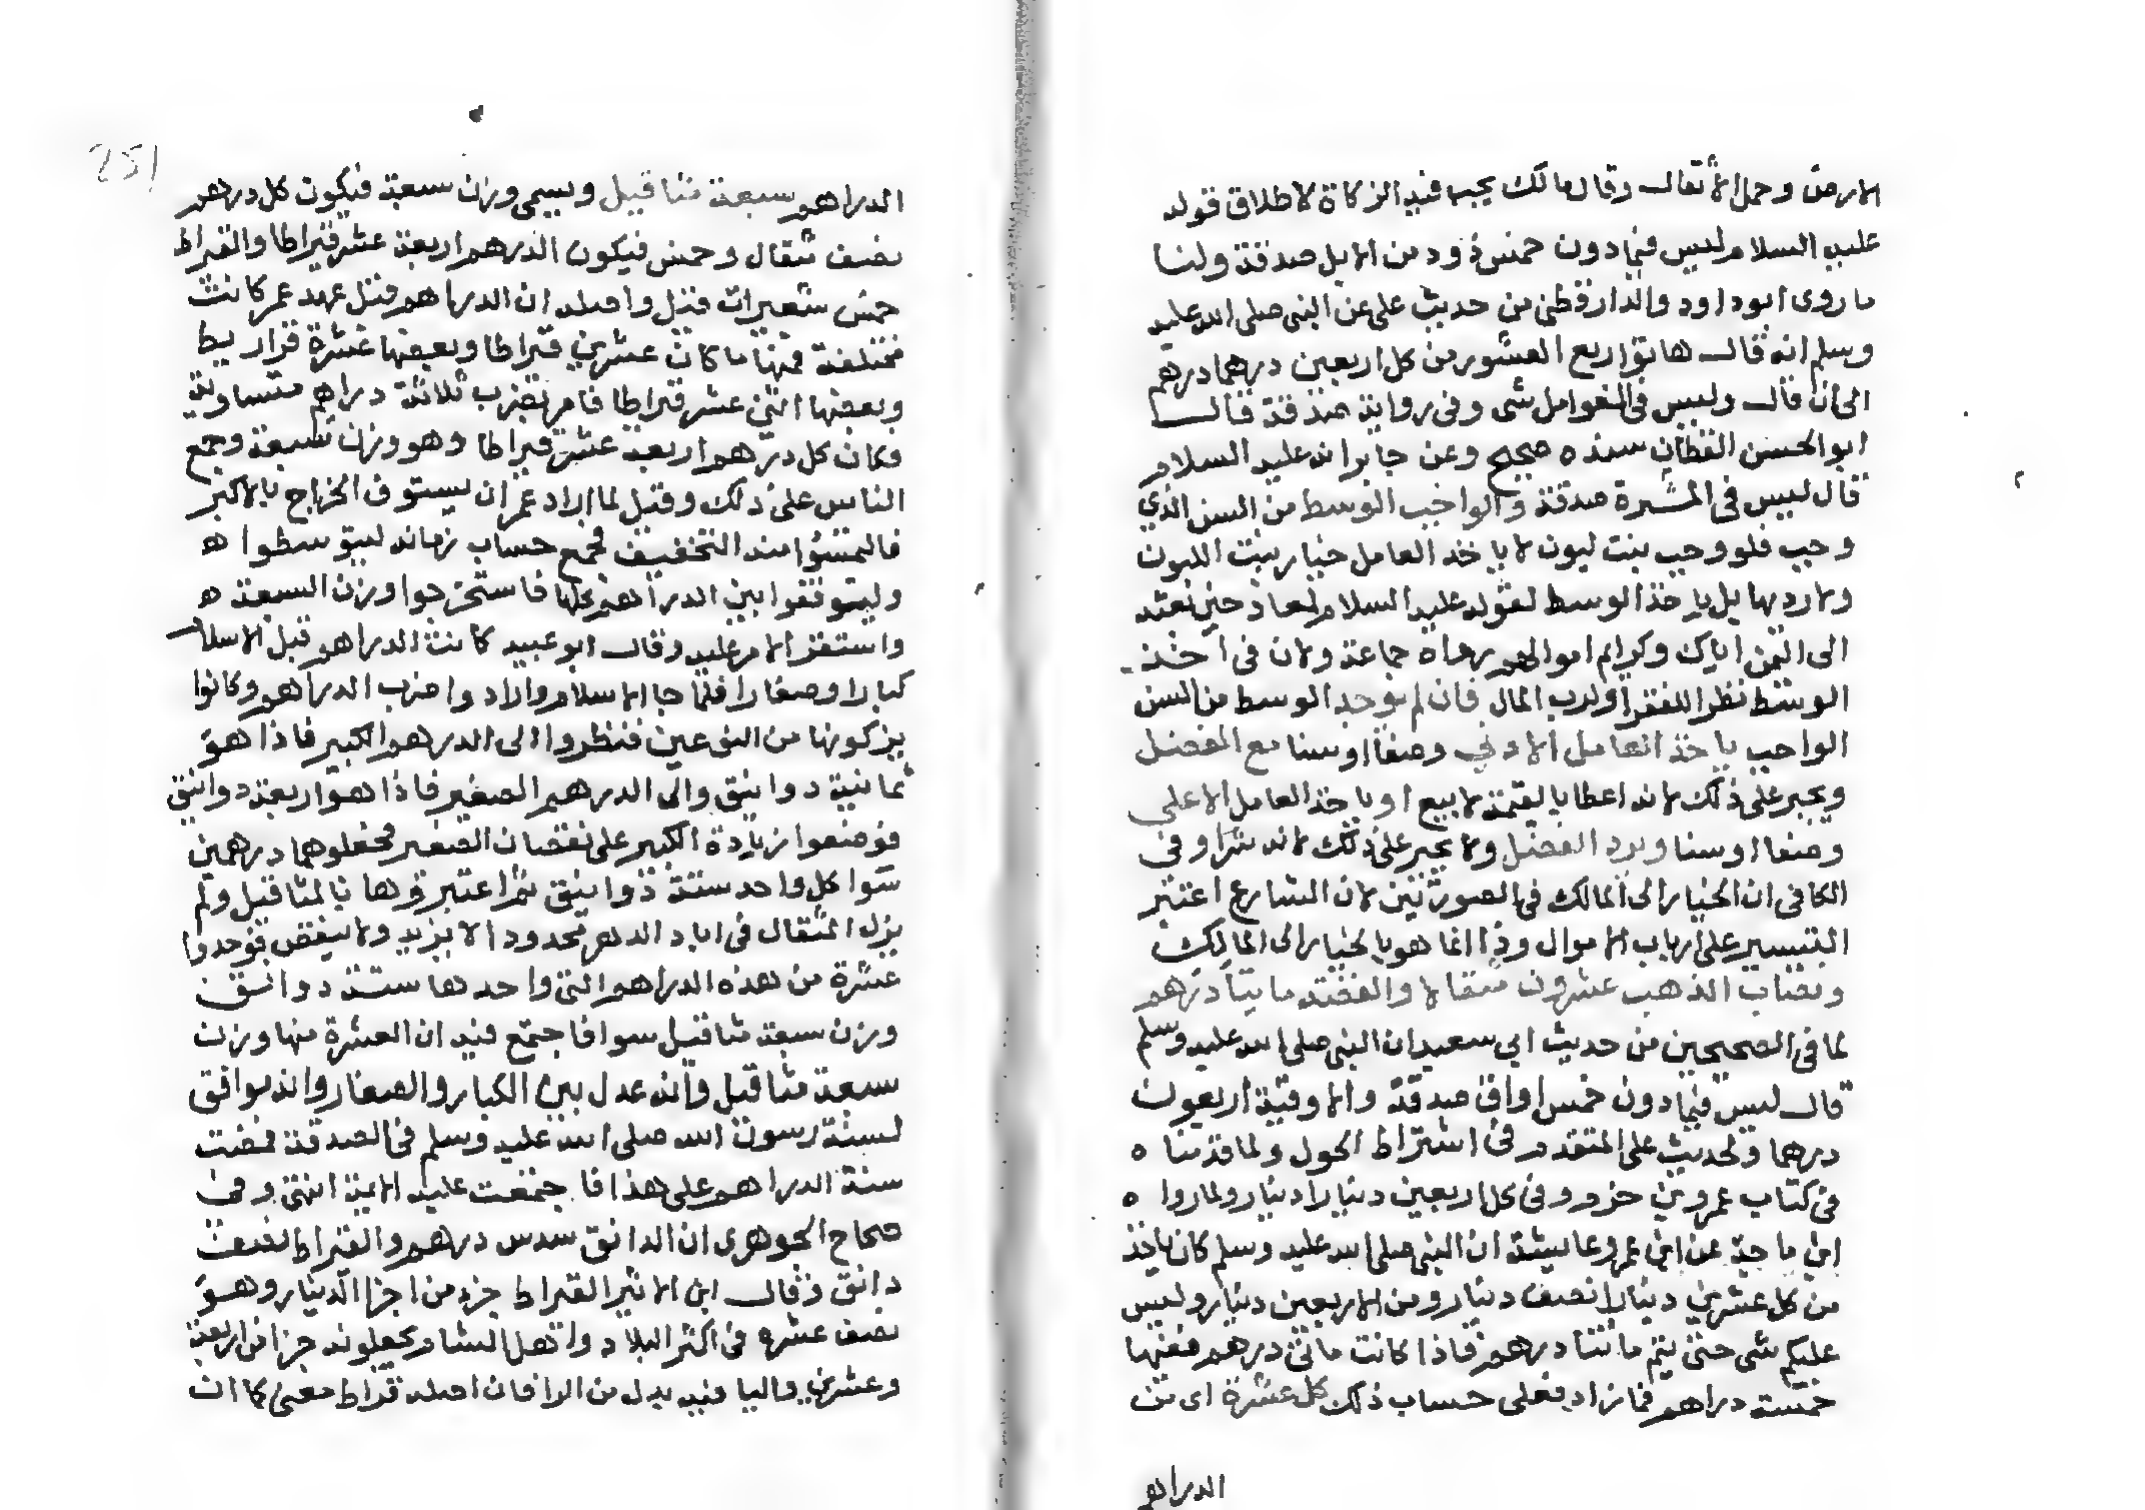 الارض وحمل الأثقال وقال مالك يجب فيه الزكاة لاطلاق قوله
عليه السلام ليس فيما دون خمس ذود من الابل صدقة ولنا
ما روى ابوداود والدارقطنى من حديث على عن النبى صلى الله عليه
وسلم انه قال هاتوا ربع العشور من كل اربعين درهما درهم
الى أن قال وليس فى العوامل شى وفى رواية صدقة قال
ابوالحسن القطان سنده صحيح وعن جابر انه عليه السلام
قال ليس فى المثيرة صدقة والواجب الوسط من السن الذي
وجب فلو وجب بنت لبون لا ياخذ العامل خيار بنت اللبون
ولا رديها بل ياخذ الوسط لقوله عليه السلام لمعاذ حين بعثه
الى اليمن اياك وكرايم اموالهم رواه جماعة ولان فى اخذ
الوسط نظرا للفقرا ولرب المال فان لم يوجد الوسط من السن
الواجب ياخذ العامل الادنى وصفا او سنا مع الفضل
ويجبر على ذلك لانه اعطا بالقيمة لا بيع او ياخذ العامل الاعلى
وصفا او سنا ويرد الفضل ولا يجبر على ذلك لانه شرا وفى
الكافى ان الخيار الى المالك فى الصورتين لان الشارع اعتبر
التيسير على ارباب الاموال وذا انما هو بالخيار الى المالك
ونصاب الذهب عشرون مثقالا والفضة مايتا درهم
لما فى الصحيحين من حديث ابي سعيد ان النبى صلى الله عليه وسلم
قال ليس فيما دون خمس اواق صدقة والاوقية اربعون
درهما ولحديث على المتقدم فى اشتراط الحول ولما قدمنا ه
فى كتاب عمرو بن حزم وفى كل اربعين دينارا دينار ولما روا ه
ابن ماجة عن ابن عمر وعايشة ان النبى صلى الله عليه وسلم كان ياخذ
من كل عشرين دينارا نصف دينار ومن الاربعين دينار وليس
عليكم شى حتى يتم ماتتا درهم فاذا كانت ماتى درهم ففيها
خمسة دراهم فما زاد فعلى حساب ذلك كل عشرة اى من
الدراهم
251
الدراهم سبعة مثاقيل ويسمى وزن سبعة فيكون كل درهم
نصف مثقال وخمس فيكون الدرهم اربعة عشر قيراطا والقيراط
خمس شعيرات قيل واصله ان الدراهم قبل عهد عمر كانت
مختلفة فمنها ما كان عشرين قيراطا وبعضها عشرة قراريط
وبعضها اثنى عشر قيراطا فامر بضرب ثلاثة دراهم متساوية
فكان كل درهم اربعة عشر قيراطا وهو وزن سبعة وجمع
الناس على ذلك وقيل لما اراد عمر ان يستوفى الخراج بالاكبر
فالتمسوا منه التخفيف فجمع حساب زمانه ليتوسطوا ه
وليتوفقوا بين الدراهم كلها فاستخرجوا وزن السبعة ه
واستقر الامر عليه وقال ابو عبيد كانت الدراهم قبل الاسلام
كبارا وصغارا فلما جا الاسلام وارادوا ضرب الدراهم وكانوا
يزكونها من النوعين فنظروا الى الدرهم الكبير فاذا هو
ثمانية دوانيق والى الدرهم الصغير فاذا هو اربعة دوانيق
فوضعوا زيادة الكبير على نقصان الصغير فجعلوهما درهمين
سوا كل واحد ستة دوانيق ثم اعتبروها بالمثاقيل ولم
يزل المثقال فى اباد الدهر محدودا لا يزيد ولا ينقص فوجدوا
عشرة من هذه الدراهم التى واحدها ستة دوانق
وزن سبعة مثاقيل سوا فاجتمع فيه ان العشرة منها وزن
سبعة مثاقيل وأنه عدل بين الكبار والصغار وانه موافق
لسنة رسول الله صلى الله عليه وسلم فى الصدقة فمضت
سنة الدراهم على هذا فاجتمعت عليه الايمة انتهى وفى
صحاح الجوهرى ان الدانق سدس درهم والقيراط نصف
دانق وقال ابن الاثير القيراط جزء من اجزا الدينار وهو
نصف عشره فى اكثر البلاد واهل الشام يجعلونه جزا من اربعة
وعشرين واليا فيه بدل من الرا فان اصله قراط معنى كما ان